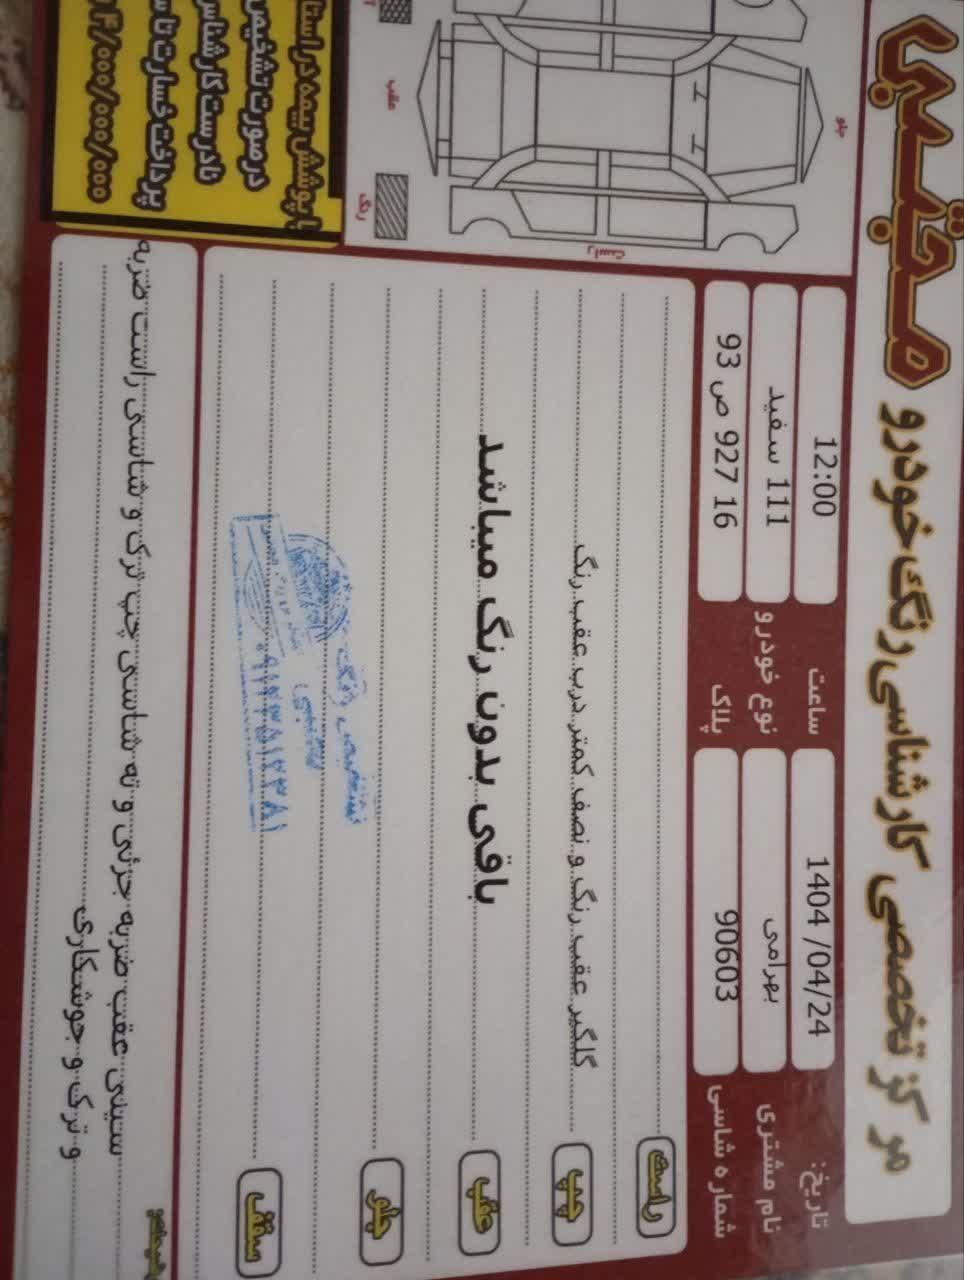 مجتبی
مرکز تخصصی کارشناسی رنگ خودرو
تاریخ: 1404 /04/24 ساعت 12:00
نام مشتری بهرامی نوع خودرو 111 سفید
شماره شاسی 90603 پلاک 93 ص 927 16
جلو
عقب
راست
رنگ
با پوشش بیمه در راستا
در صورت تشخیص
نادرست کارشناس
پرداخت خسارت تا س
4/000/000/000
راست
چپ گلگیر عقب رنگ و نصف کمتر درب عقب رنگ
عقب باقی بدون رنگ میباشد
جلو
سقف
تشخیص رنگ
مجتبی
سینی عقب ضربه جزئی و ته شاسی چپ ترک و شاسی راست ضربه
و ترک و جوشکاری